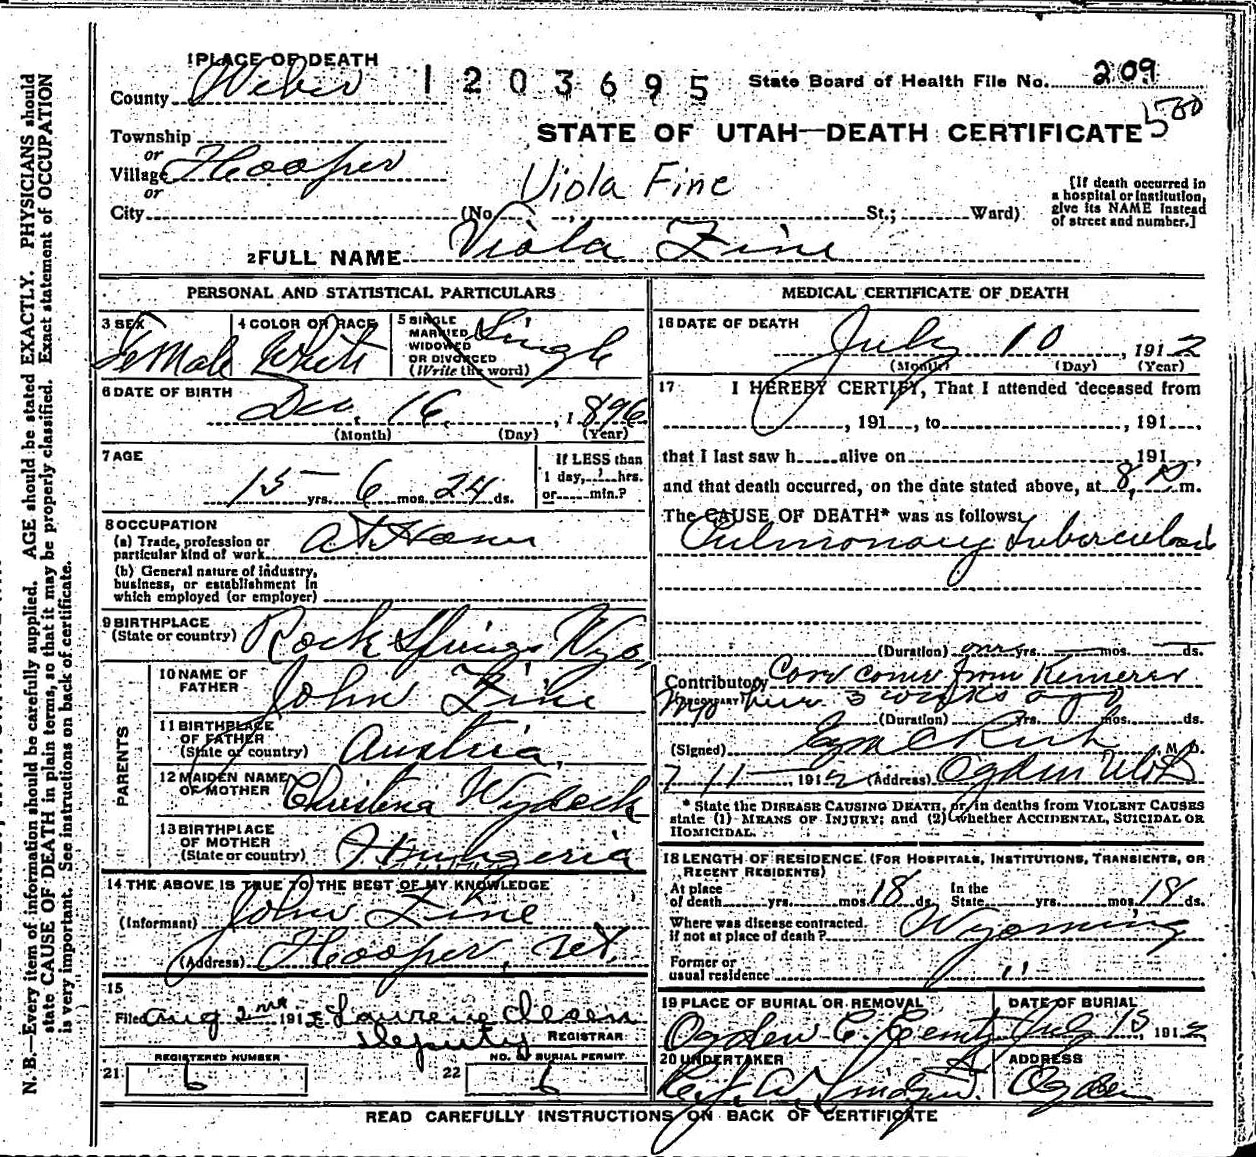 1 PLACE OF DEATH
County Weber
1203695
State Board of Health File No. 209
500
Township
or
Village Hooper
or
STATE OF UTAH—DEATH CERTIFICATE
Viola Fine
City (No. St.; Ward)
[If death occurred in
a hospital or institution,
give its NAME instead
of street and number.]
2 FULL NAME Viola Fine
PERSONAL AND STATISTICAL PARTICULARS
3 SEX Female
4 COLOR OR RACE White
5 SINGLE
MARRIED
WIDOWED
OR DIVORCED
(Write the word) Single
6 DATE OF BIRTH
Dec. 16, 1896
(Month) (Day) (Year)
7 AGE
15 yrs. 6 mos. 24 ds.
If LESS than
1 day, hrs.
or min.?
8 OCCUPATION
(a) Trade, profession or
particular kind of work At Home
(b) General nature of industry,
business, or establishment in
which employed (or employer)
9 BIRTHPLACE
(State or country) Rock Springs Wyo,
PARENTS
10 NAME OF
FATHER John Fine
11 BIRTHPLACE
OF FATHER
(State or country) Austria,
12 MAIDEN NAME
OF MOTHER Christina
13 BIRTHPLACE
OF MOTHER
(State or country) Hungeria
14 THE ABOVE IS TRUE TO THE BEST OF MY KNOWLEDGE
(Informant) John Fine
(Address) Hooper, Ut.
15
Filed Aug 2nd 1912 Olsen
Deputy REGISTRAR
REGISTERED NUMBER
21 6
NO. of BURIAL PERMIT
22 6
MEDICAL CERTIFICATE OF DEATH
16 DATE OF DEATH
July 10, 1912
(Month) (Day) (Year)
17 I HEREBY CERTIFY, That I attended deceased from
, 191 , to , 191 ,
that I last saw h alive on 191 ,
and that death occurred, on the date stated above, at 8, P m.
The CAUSE OF DEATH* was as follows:
Pulmonary Tuberculosis
(Duration) one yrs. mos. ds.
Contributory Case came from Kemerer
(SECONDARY) Wyo here 3 weeks ago
(Duration) yrs. mos. ds.
(Signed) M. D.
7-11- 1912 (Address) Ogden Utah
* State the DISEASE CAUSING DEATH, or, in deaths from VIOLENT CAUSES
state (1) MEANS OF INJURY; and (2) whether ACCIDENTAL, SUICIDAL OR
HOMICIDAL.
18 LENGTH OF RESIDENCE (FOR HOSPITALS, INSTITUTIONS, TRANSIENTS, OR
RECENT RESIDENTS)
At place
of death yrs. mos. 18 ds.
In the
State yrs. mos. 18 ds.
Where was disease contracted.
if not at place of death? Wyoming
Former or
usual residence "
19 PLACE OF BURIAL OR REMOVAL
Ogden C. Cemt
DATE OF BURIAL
July 15, 1912
20 UNDERTAKER
ADDRESS
Ogden
READ CAREFULLY INSTRUCTIONS ON BACK OF CERTIFICATE
N. B.—Every item of information should be carefully supplied. AGE should be stated EXACTLY. PHYSICIANS should
state CAUSE OF DEATH in plain terms, so that it may be properly classified. Exact statement of OCCUPATION
is very important. See instructions on back of certificate.